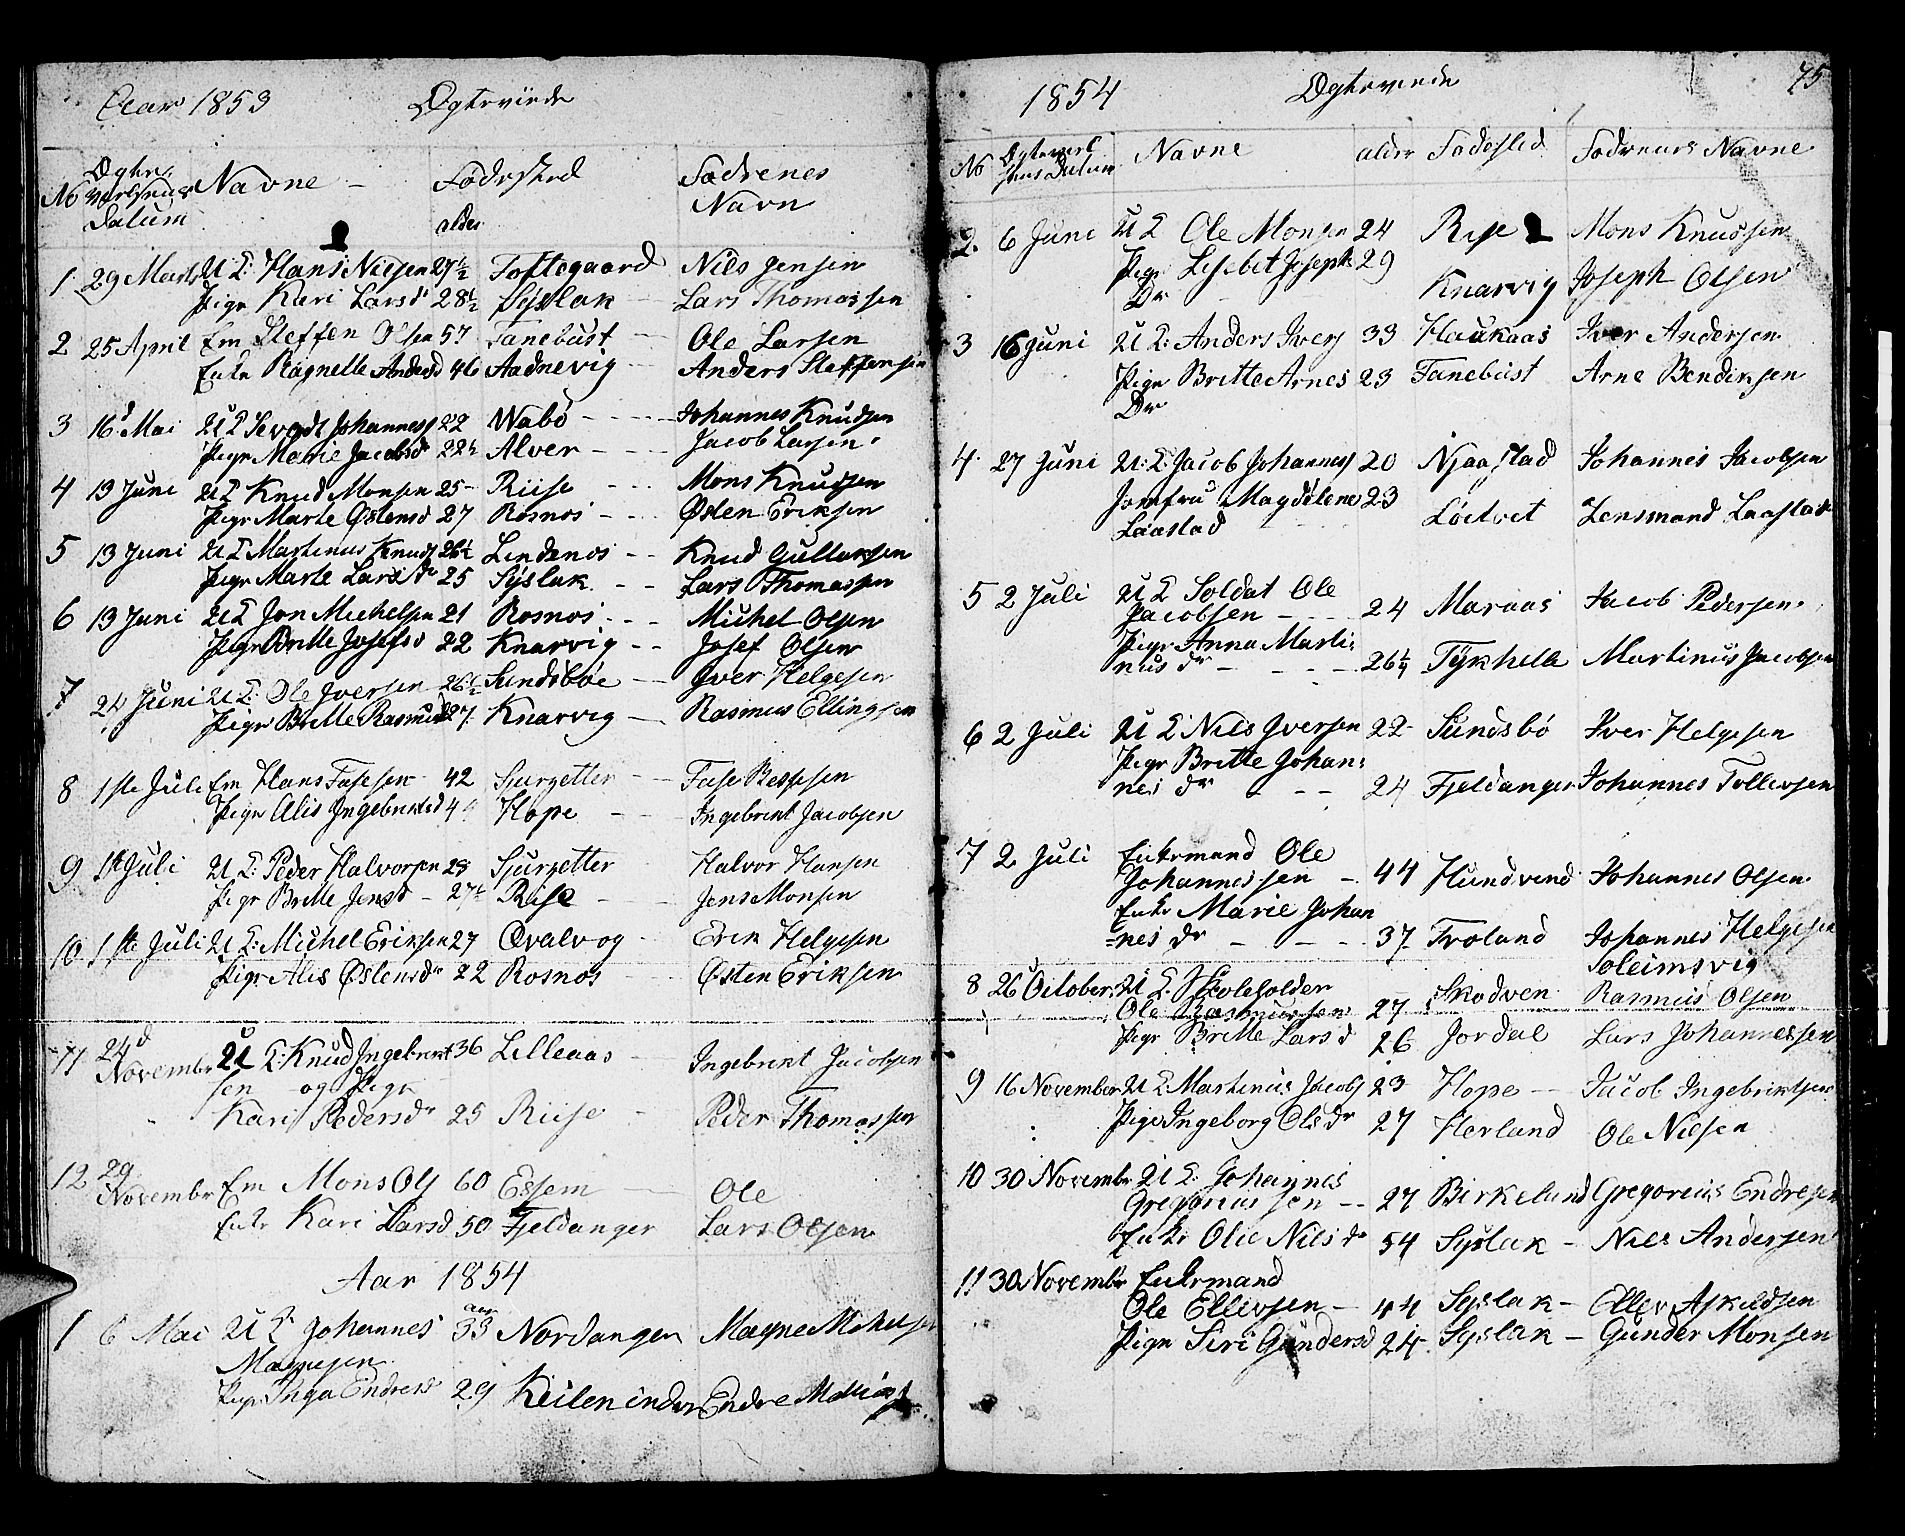 Aar 1853 Ægteviede
No Ægte værelsens Datum Navne - Födested alder Fædrenes Navn
1 29 Marts U K: Hans Nilsen 27½ Toftegaard Nils Jensen
Pige Kari Larsdr 28½ Syslak Lars Thomassen
2 25 April Em Steffen Olsen 57 Tanebust Ole Larsen
Enke Ragnelle Andersd 46 Aadnevig Anders Steffensen
3 16d Mai U K Johannes 22 Wabö Johannes Knudsen
Pige Marie Jacobsdr 22½ Alver Jacob Larsen
4 13 Juni U K Knud Monsen 25 Riise Mons Knudsen
Pige Marte Östensd 27 Rosnos Östen Eriksen
5 13 Juni U K Martinus Knuds 26½ Lindenos Knud Gullaksen
Pige Marte Larsdr 25 Syslak Lars Thomassen
6 13 Juni U K Jon Michelsen 21 Rosnos Michel Olsen
Pige Britte Josefsd 22 Knarvig Josef Olsen
7 24 Juni U K: Ole Iversen 26½ Sundsböe Iver Helgesen
Pige Britte Rasmusd 27 Knarvig Rasmus Ellingsen
8 1ste Juli Em Hans Fasesen 42 Sjurzetter Fase
Pige Alis Ingebriktsd Hope Ingebrikt Jacobsen
9 1st Juli U K: Peder Halvorsen 28 Sjurzetter Halvor Hansen
Pige Britte Jensd - 27½ Riise Jens Monsen
10 1ste Juli U K: Michel Eriksen 27 Qvalvog Erik Helgesen
Pige Alis Östensdr 22 Rosnos Östen Eriksen
11 24d Novembr U K: Knud Ingebrikt 36 Lilleaas Ingebrikt Jacobsen
sen og Pige
Kari Pedersdr 25 Riise Peder Thomassen
12 29 Novembr Em Mons Ols 60 Essem Ole
Enke Kari Larsd 50 Fjeldanger Lars Olsen
Aar 1854
aar
1 6 Mai U K Johannes 33 Nordanger Magne
Magnesen
Pige Inga Endresd 29 Keilen indre Endre
1854 Ægteviede 75
No Ægteværelsens Datum Navne alder Födested Fædrenes Navne
2. 6 Juni U K Ole Monsen 24 Rise Mons Knudsen
Pige Lisebet Josephs 29 Knarvig Joseph Olsen
Dr
3 16 Juni U K: Anders Ivers 33 Haukaas Iver Andersen
Pige Britte Arnes 23 Tanebust Arne Bendiksen
Dr
4. 27 Juni U: K: Jacob Johannes 20 Njaastad Johannes Jacobsen
Jomfrue Magdelene 23 Löitvet Lensmand Laastad
Laastad
5 2 Juli U K Soldat Ole
Jacobsen 24 Maraas Jacob Pedersen
Pige Anna Marti:
nus dr 26¼ Tykhelle Martinus Jacobsen
6 2 Juli U K Nils Iversen 22 Sundsbö Iver Helgesen
Pige Britte Johan:
nes dr 24 Fjeldanger Johannes Tollevsen
7 2 Juli Enkemand Ole
Johannessen - 44 Hundvend Johannes Olsen
Enke Marie Johan
=nes dr 37 Froland Johannes Helgesen
Soleimsvig
8 26 October. U K. Skoleholder
Ole Rasmussen 27 Skodven Rasmus Olsen
Pige Britte Larsd 26 Jordal Lars Johannessen
9 16 November U K Martinus Jacobs 23 Hope - Jacob Ingebriktsen
Pige Ingeborg Olsdr 27 Herland Ole Nilsen
10 30 Novembr U K: Johannes
Gregoriussen 27 Birkeland Gregorius Endresen
Enke Olie Nilsdr 54 Syslak - Nils Andersen
11 30 Novembr Enkemand
Ole Ellevsen - 44 Syslak - Ellev Askeldsen
Pige Siri Gundersd 24 Syslak - Gunder Monsen